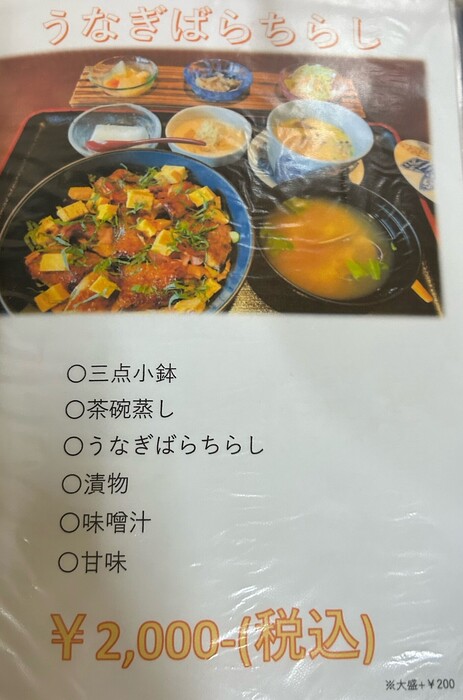 うなぎばらちらし
〇三点小鉢
〇茶碗蒸し
〇うなぎばらちらし
〇漬物
〇味噌汁
〇甘味
￥2,000-(税込)
※大盛+￥200